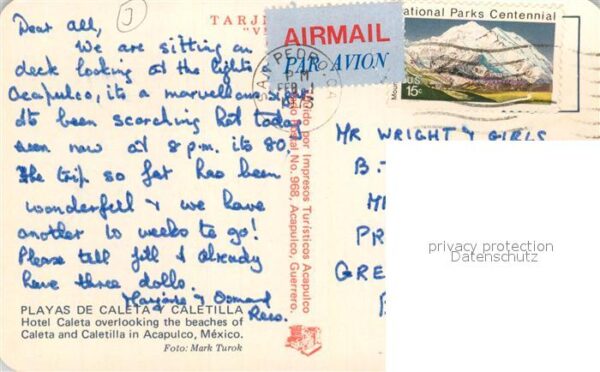 J
TARJ
"V
Dear all,
We are sitting on
deck looking at the lights
Acapulco, its a marvellous sight
It's been scorching hot today
even now at 8 p.m. its 80,
the trip so far has been
wonderful & we have
another 10 weeks to go!
Please tell Jill I already
have three dolls.
Marjorie & Osmond
Rees.
PLAYAS DE CALETA Y CALETILLA
Hotel Caleta overlooking the beaches of
Caleta and Caletilla in Acapulco, México.
Foto: Mark Turok
AIRMAIL
PAR AVION
SAN PEDRO, CA
PM
FEB
ational Parks Centennial
US
15c
por Impresos Turísticos Acapulco
Postal No. 968, Acapulco, Guerrero.
MR WRIGHT & GIRLS
B.
M
PR
GRE
privacy protection
Datenschutz